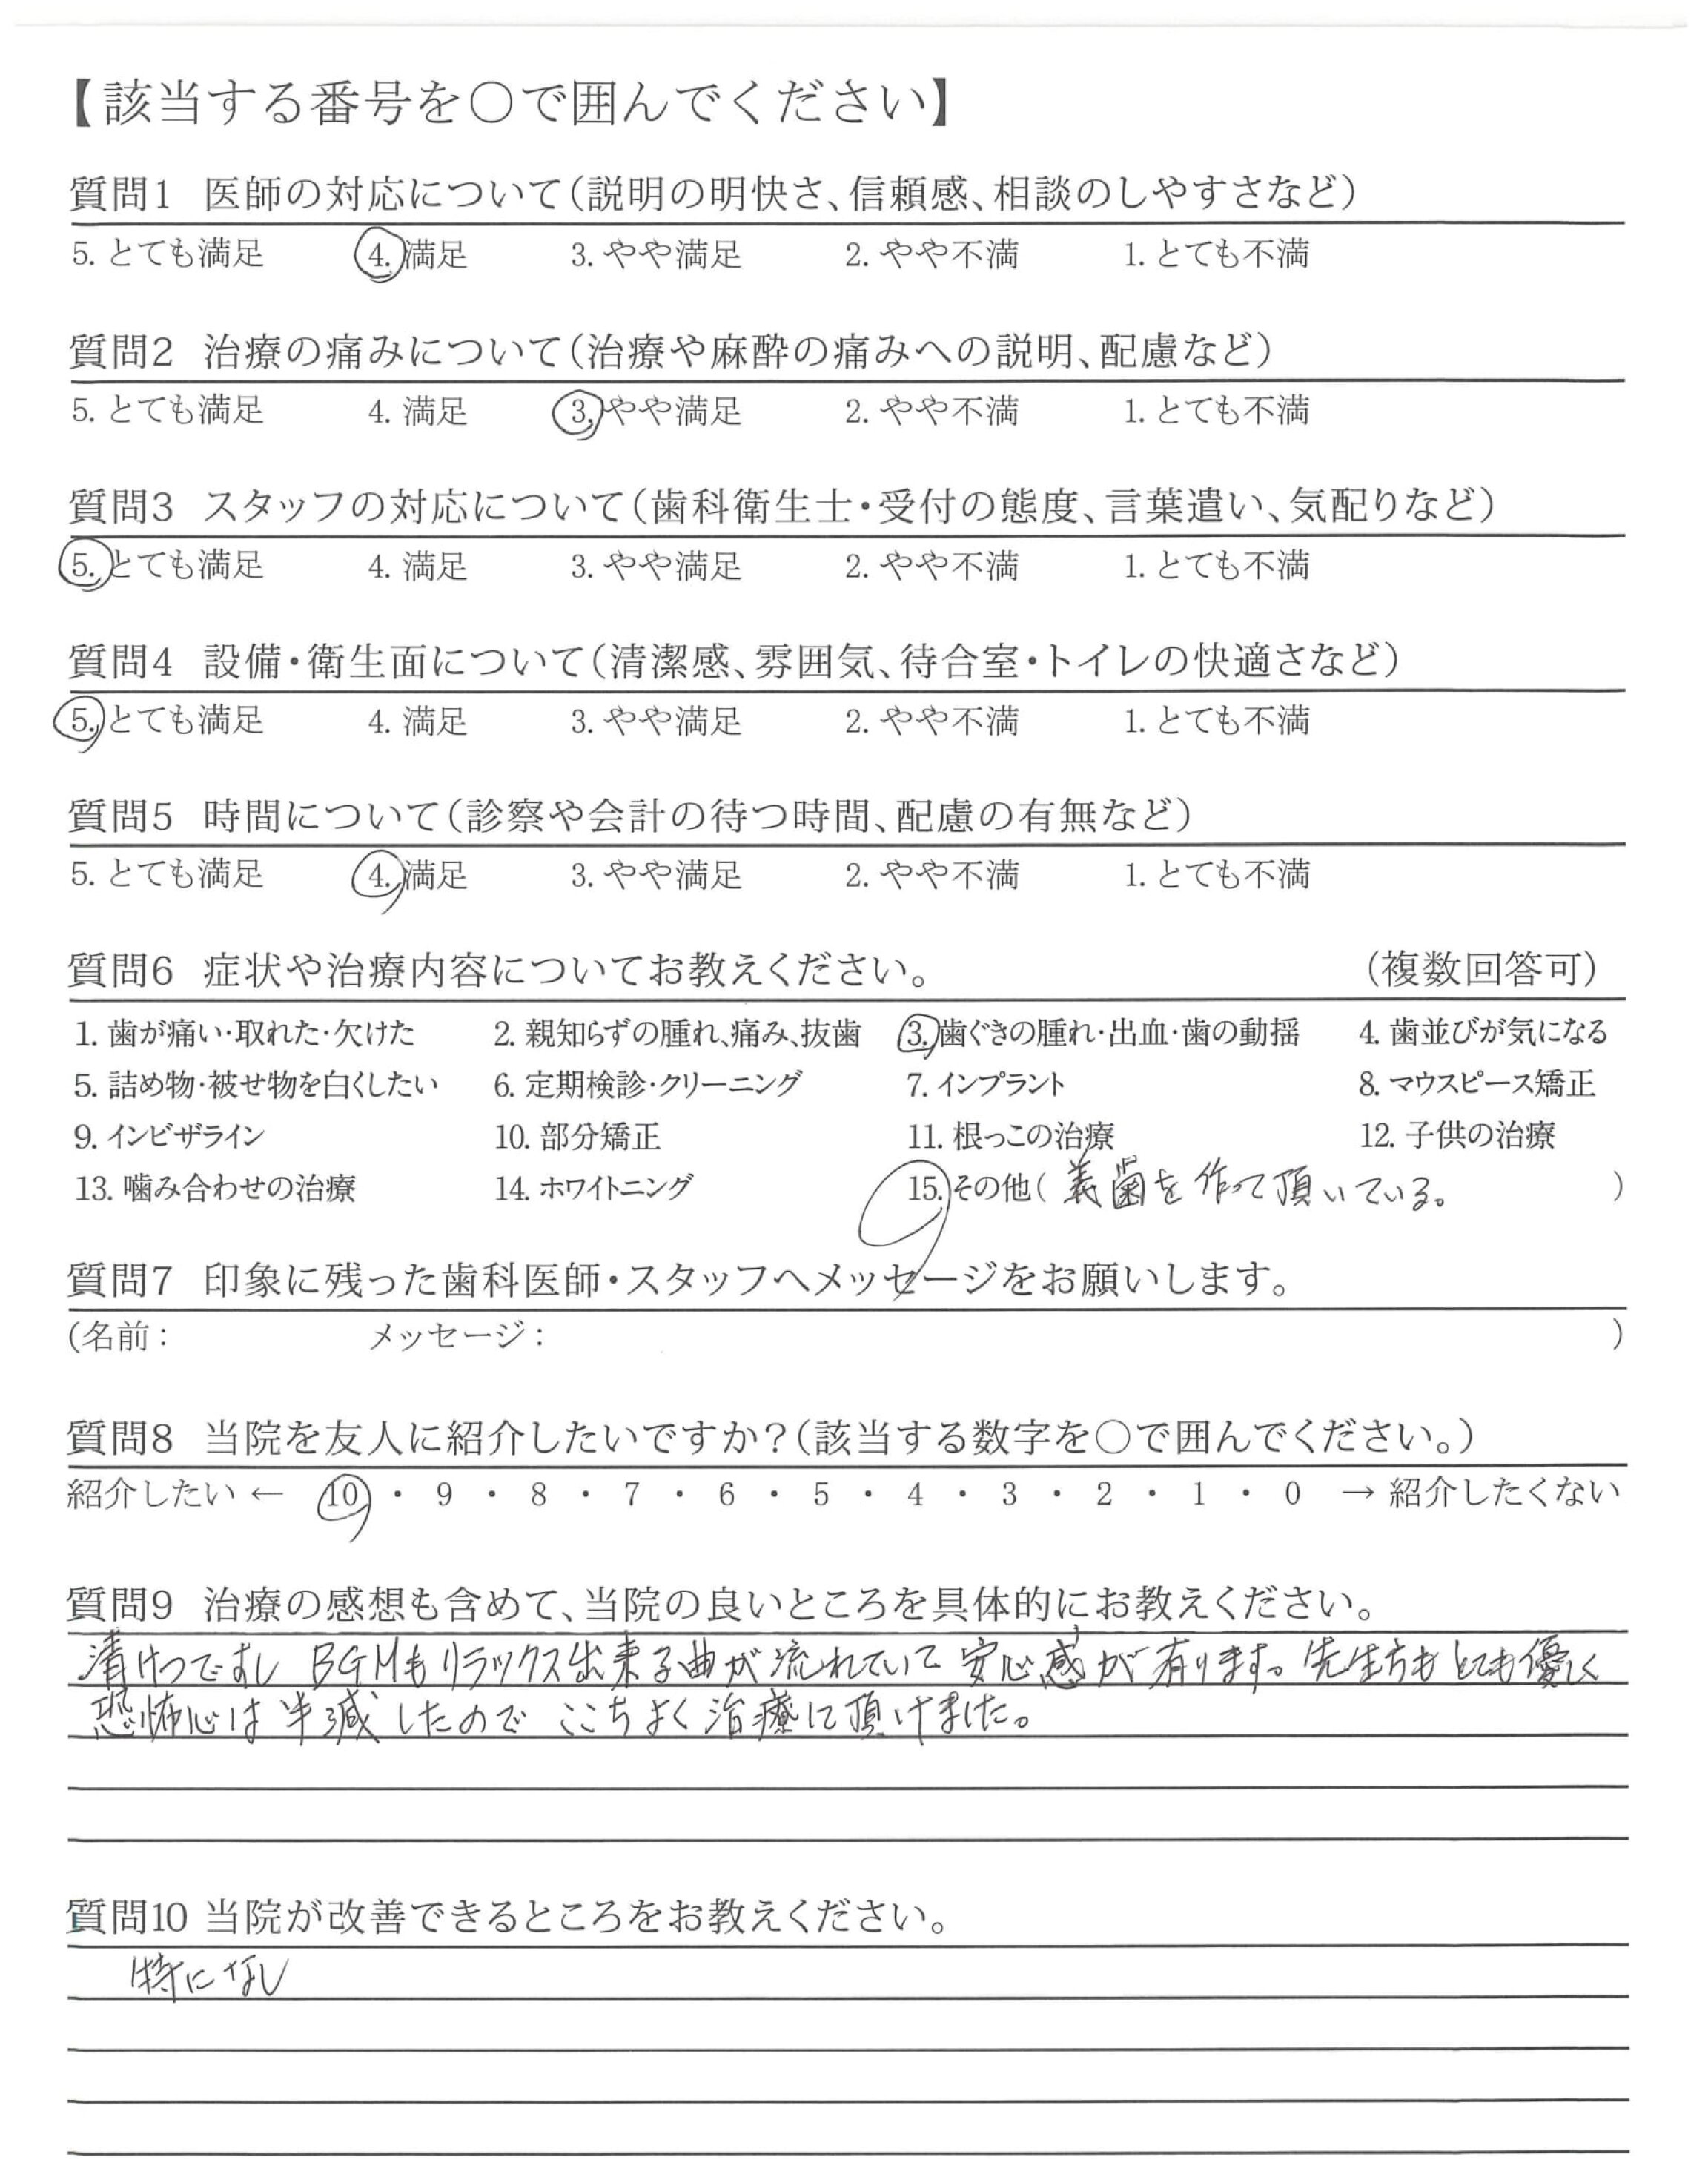 【該当する番号を○で囲んでください】
質問1 医師の対応について(説明の明快さ、信頼感、相談のしやすさなど)
5. とても満足 4. 満足 3. やや満足 2. やや不満 1. とても不満
質問2 治療の痛みについて(治療や麻酔の痛みへの説明、配慮など)
5. とても満足 4. 満足 3. やや満足 2. やや不満 1. とても不満
質問3 スタッフの対応について(歯科衛生士・受付の態度、言葉遣い、気配りなど)
5. とても満足 4. 満足 3. やや満足 2. やや不満 1. とても不満
質問4 設備・衛生面について(清潔感、雰囲気、待合室・トイレの快適さなど)
5. とても満足 4. 満足 3. やや満足 2. やや不満 1. とても不満
質問5 時間について(診察や会計の待つ時間、配慮の有無など)
5. とても満足 4. 満足 3. やや満足 2. やや不満 1. とても不満
質問6 症状や治療内容についてお教えください。 (複数回答可)
1. 歯が痛い・取れた・欠けた 2. 親知らずの腫れ、痛み、抜歯 3. 歯ぐきの腫れ・出血・歯の動揺 4. 歯並びが気になる
5. 詰め物・被せ物を白くしたい 6. 定期検診・クリーニング 7. インプラント 8. マウスピース矯正
9. インビザライン 10. 部分矯正 11. 根っこの治療 12. 子供の治療
13. 噛み合わせの治療 14. ホワイトニング 15. その他( 義歯を作って頂いている。 )
質問7 印象に残った歯科医師・スタッフへメッセージをお願いします。
(名前: メッセージ: )
質問8 当院を友人に紹介したいですか?(該当する数字を○で囲んでください。)
紹介したい ← 10 ・ 9 ・ 8 ・ 7 ・ 6 ・ 5 ・ 4 ・ 3 ・ 2 ・ 1 ・ 0 → 紹介したくない
質問9 治療の感想も含めて、当院の良いところを具体的にお教えください。
清けつですし BGMもリラックス出来る曲が流れていて 安心感が有ります。先生方もとても優しく
恐怖心は半減したので ここちよく治療に頂けました。
質問10 当院が改善できるところをお教えください。
特になし